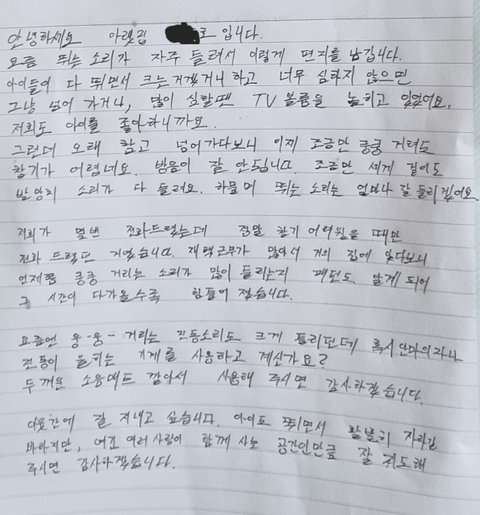 안녕하세요 아랫집 호 입니다.
요즘 뛰는 소리가 자주 들려서 이렇게 편지를 남깁니다.
아이들이 다 뛰면서 크는거겠거니 하고 너무 심하지 않으면
그냥 넘어 가거나, 많이 심할땐 TV 볼륨을 높히고 있었어요.
저희도 아이를 좋아하니까요.
그런데 오래 참고 넘어가다보니 이제 조금만 쿵쿵 거려도
참기가 어렵네요. 방음이 잘 안됩니다. 조금만 세게 걸어도
발망치 소리가 다 들려요. 하물며 뛰는 소리는 얼마나 잘 들리겠어요
저희가 몇번 전화드렸는데 정말 참기 어려웠을 때만
전화 드렸던 거였습니다. 재택근무가 많아서 거의 집에 있다보니
언제쯤 쿵쿵 거리는 소리가 많이 들리는지 패턴도 알게 되어
그 시간이 다가올수록 힘들어 졌습니다.
요즘엔 웅-웅- 거리는 진동소리도 크게 들리던데 혹시 안마의자나
진동이 울리는 기계를 사용하고 계신가요?
두꺼운 소음매트 깔아서 사용해 주시면 감사하겠습니다.
이웃간에 잘 지내고 싶습니다. 아이도 뛰면서 활발히 자라길
바라지만, 여긴 여러사람이 함께 사는 공간인만큼 잘 지도해
주시면 감사하겠습니다.